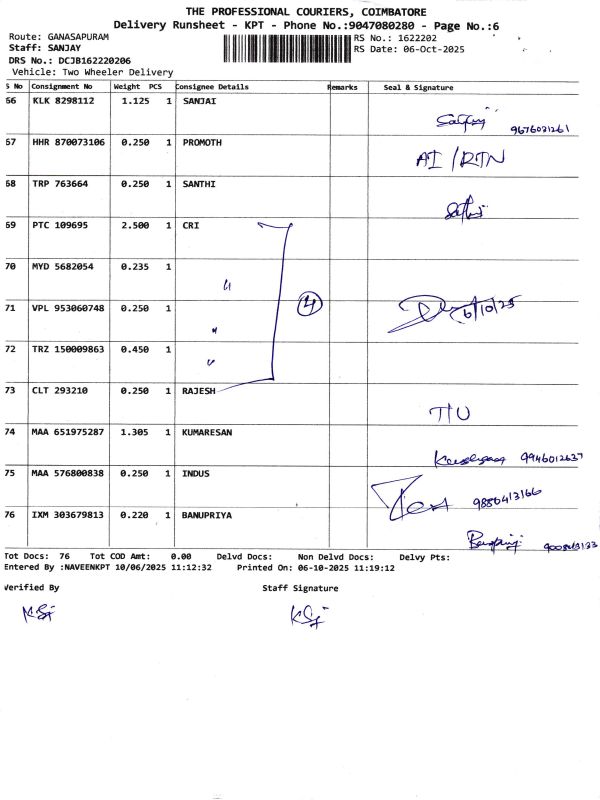 THE PROFESSIONAL COURIERS, COIMBATORE
Delivery Runsheet - KPT - Phone No.:9047080280 - Page No.:6
Route: GANASAPURAM
RS No.: 1622202
Staff: SANJAY
RS Date: 06-Oct-2025
DRS No.: DCJB162220206
Vehicle: Two Wheeler Delivery
S No Consignment No Weight PCS Consignee Details Remarks Seal & Signature
66 KLK 8298112 1.125 1 SANJAI
9676031261
67 HHR 870073106 0.250 1 PROMOTH AI /RTN
68 TRP 763664 0.250 1 SANTHI
69 PTC 109695 2.500 1 CRI
70 MYD 5682054 0.235 1 "
71 VPL 953060748 0.250 1 " 4 6/10/25
72 TRZ 150009863 0.450 1 "
73 CLT 293210 0.250 1 RAJESH
74 MAA 651975287 1.305 1 KUMARESAN
9946012637
75 MAA 576800838 0.250 1 INDUS
9886413166
76 IXM 303679813 0.220 1 BANUPRIYA
Tot Docs: 76 Tot COD Amt: 0.00 Delvd Docs: Non Delvd Docs: Delvy Pts:
Entered By :NAVEENKPT 10/06/2025 11:12:32 Printed On: 06-10-2025 11:19:12
Verified By Staff Signature